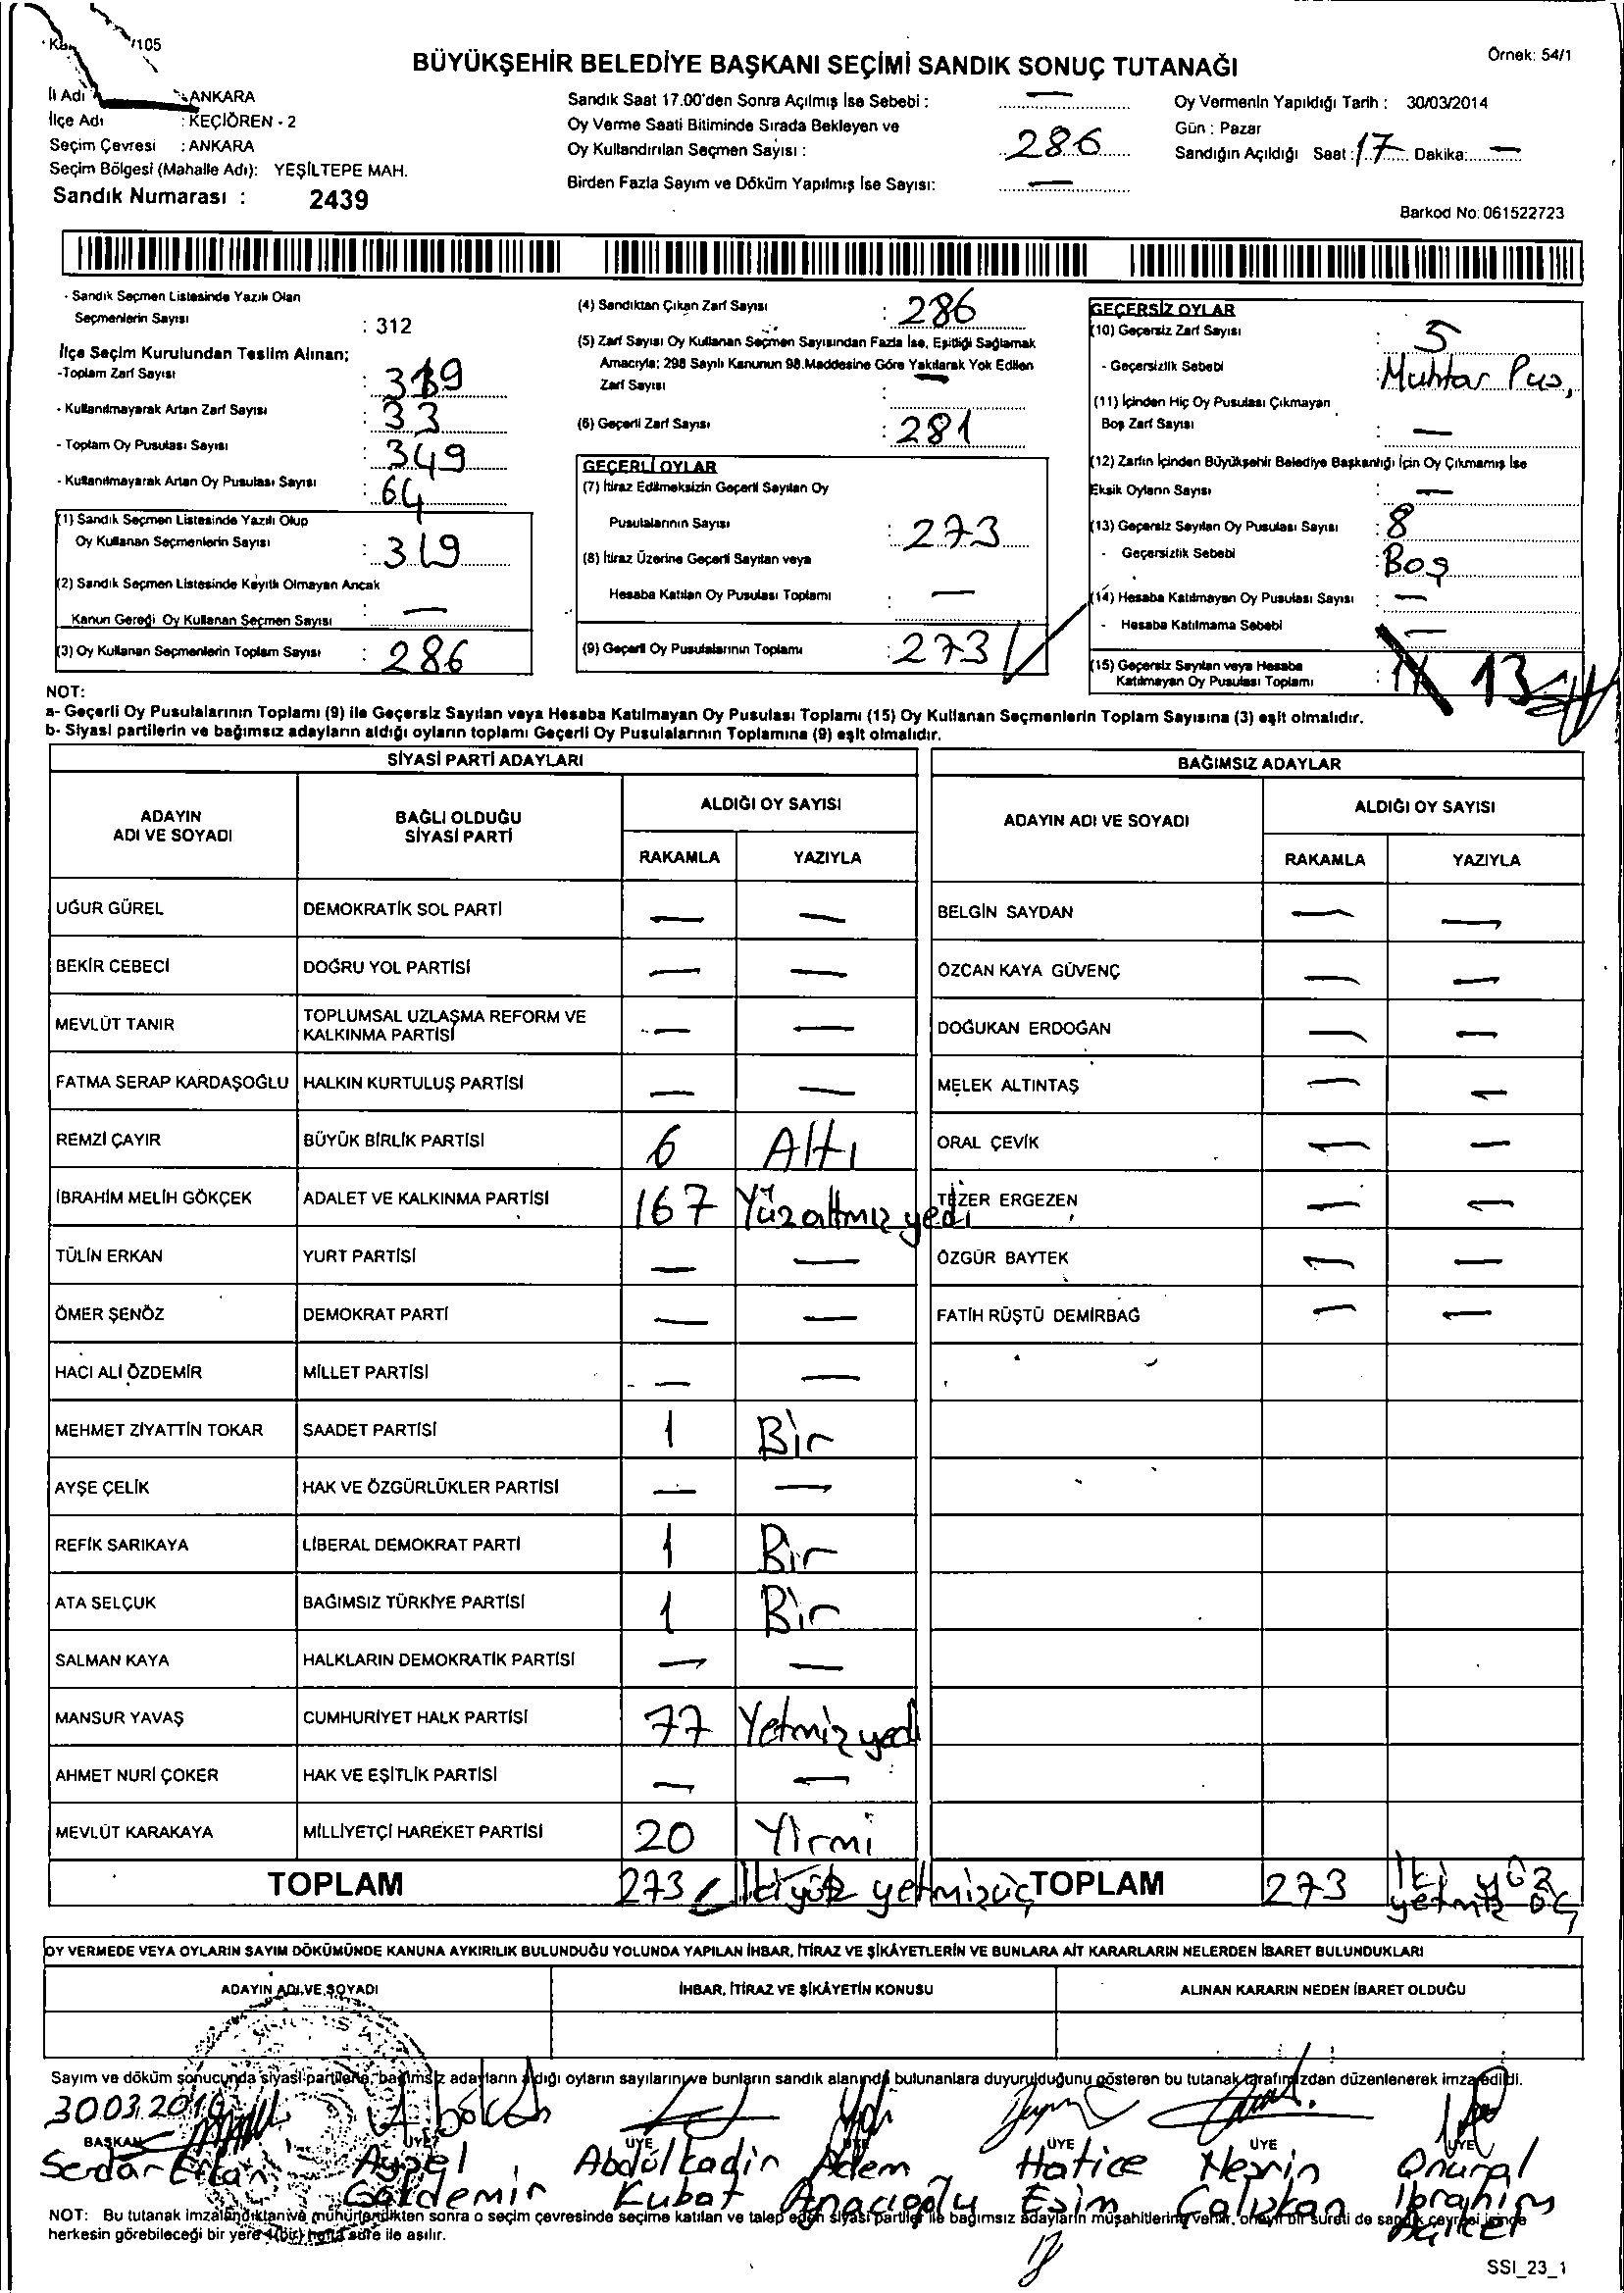 /105
Örnek: 54/1
BÜYÜKŞEHİR BELEDİYE BAŞKANI SEÇİMİ SANDIK SONUÇ TUTANAĞI
İl Adı : ANKARA
İlçe Adı : KEÇİÖREN - 2
Seçim Çevresi : ANKARA
Seçim Bölgesi (Mahalle Adı): YEŞİLTEPE MAH.
Sandık Numarası : 2439
Sandık Saat 17.00'den Sonra Açılmış İse Sebebi : —
Oy Verme Saati Bitiminde Sırada Bekleyen ve
Oy Kullandırılan Seçmen Sayısı : 286
Birden Fazla Sayım ve Döküm Yapılmış İse Sayısı: —
Oy Vermenin Yapıldığı Tarih : 30/03/2014
Gün : Pazar
Sandığın Açıldığı Saat : 17 Dakika: —
Barkod No: 061522723
- Sandık Seçmen Listesinde Yazılı Olan
Seçmenlerin Sayısı : 312
İlçe Seçim Kurulundan Teslim Alınan;
-Toplam Zarf Sayısı : 319
- Kullanılmayarak Artan Zarf Sayısı : 33
- Toplam Oy Pusulası Sayısı : 349
- Kullanılmayarak Artan Oy Pusulası Sayısı : 64
(1) Sandık Seçmen Listesinde Yazılı Olup
Oy Kullanan Seçmenlerin Sayısı : 319
(2) Sandık Seçmen Listesinde Kayıtlı Olmayan Ancak
Kanun Gereği Oy Kullanan Seçmen Sayısı : —
(3) Oy Kullanan Seçmenlerin Toplam Sayısı : 286
(4) Sandıktan Çıkan Zarf Sayısı : 286
(5) Zarf Sayısı Oy Kullanan Seçmen Sayısından Fazla İse, Eşitliği Sağlamak
Amacıyla; 298 Sayılı Kanunun 98.Maddesine Göre Yakılarak Yok Edilen
Zarf Sayısı : —
(6) Geçerli Zarf Sayısı : 281
GEÇERLİ OYLAR
(7) İtiraz Edilmeksizin Geçerli Sayılan Oy
Pusulalarının Sayısı : 273
(8) İtiraz Üzerine Geçerli Sayılan veya
Hesaba Katılan Oy Pusulası Toplamı : —
(9) Geçerli Oy Pusulalarının Toplamı : 273
GEÇERSİZ OYLAR
(10) Geçersiz Zarf Sayısı : 5
- Geçersizlik Sebebi : Muhtar Pus,
(11) İçinden Hiç Oy Pusulası Çıkmayan
Boş Zarf Sayısı : —
(12) Zarfın İçinden Büyükşehir Belediye Başkanlığı İçin Oy Çıkmamış İse
Eksik Oyların Sayısı : —
(13) Geçersiz Sayılan Oy Pusulası Sayısı : 8
- Geçersizlik Sebebi : Boş
(14) Hesaba Katılmayan Oy Pusulası Sayısı : —
- Hesaba Katılmama Sebebi : —
(15) Geçersiz Sayılan veya Hesaba
Katılmayan Oy Pusulası Toplamı : 13
NOT:
a- Geçerli Oy Pusulalarının Toplamı (9) ile Geçersiz Sayılan veya Hesaba Katılmayan Oy Pusulası Toplamı (15) Oy Kullanan Seçmenlerin Toplam Sayısına (3) eşit olmalıdır.
b- Siyasi partilerin ve bağımsız adayların aldığı oyların toplamı Geçerli Oy Pusulalarının Toplamına (9) eşit olmalıdır.
SİYASİ PARTİ ADAYLARI
ADAYIN ADI VE SOYADI BAĞLI OLDUĞU SİYASİ PARTİ ALDIĞI OY SAYISI
RAKAMLA YAZIYLA
UĞUR GÜREL DEMOKRATİK SOL PARTİ — —
BEKİR CEBECİ DOĞRU YOL PARTİSİ — —
MEVLÜT TANIR TOPLUMSAL UZLAŞMA REFORM VE KALKINMA PARTİSİ — —
FATMA SERAP KARDAŞOĞLU HALKIN KURTULUŞ PARTİSİ — —
REMZİ ÇAYIR BÜYÜK BİRLİK PARTİSİ 6 Altı
İBRAHİM MELİH GÖKÇEK ADALET VE KALKINMA PARTİSİ 167 Yüzaltmız yedi
TÜLİN ERKAN YURT PARTİSİ — —
ÖMER ŞENÖZ DEMOKRAT PARTİ — —
HACI ALİ ÖZDEMİR MİLLET PARTİSİ — —
MEHMET ZİYATTİN TOKAR SAADET PARTİSİ 1 Bir
AYŞE ÇELİK HAK VE ÖZGÜRLÜKLER PARTİSİ — —
REFİK SARIKAYA LİBERAL DEMOKRAT PARTİ 1 Bir
ATA SELÇUK BAĞIMSIZ TÜRKİYE PARTİSİ 1 Bir
SALMAN KAYA HALKLARIN DEMOKRATİK PARTİSİ — —
MANSUR YAVAŞ CUMHURİYET HALK PARTİSİ 77 Yetmiz yedi
AHMET NURİ ÇOKER HAK VE EŞİTLİK PARTİSİ — —
MEVLÜT KARAKAYA MİLLİYETÇİ HAREKET PARTİSİ 20 Yirmi
TOPLAM 273 İkiyüz yetmizüç
BAĞIMSIZ ADAYLAR
ADAYIN ADI VE SOYADI ALDIĞI OY SAYISI
RAKAMLA YAZIYLA
BELGİN SAYDAN — —
ÖZCAN KAYA GÜVENÇ — —
DOĞUKAN ERDOĞAN — —
MELEK ALTINTAŞ — —
ORAL ÇEVİK — —
TEZER ERGEZEN — —
ÖZGÜR BAYTEK — —
FATİH RÜŞTÜ DEMİRBAĞ — —
TOPLAM 273 İki yüz yetmiz üç
OY VERMEDE VEYA OYLARIN SAYIM DÖKÜMÜNDE KANUNA AYKIRILIK BULUNDUĞU YOLUNDA YAPILAN İHBAR, İTİRAZ VE ŞİKÂYETLERİN VE BUNLARA AİT KARARLARIN NELERDEN İBARET BULUNDUKLARI
ADAYIN ADI VE SOYADI İHBAR, İTİRAZ VE ŞİKÂYETİN KONUSU ALINAN KARARIN NEDEN İBARET OLDUĞU
Sayım ve döküm sonucunda siyasi partilerle, bağımsız adayların aldığı oyların sayılarını ve bunların sandık alanında bulunanlara duyurulduğunu gösteren bu tutanak tarafımızdan düzenlenerek imza edildi.
30.03.2014
BAŞKAN ÜYE ÜYE ÜYE ÜYE ÜYE ÜYE
Serdar Ertan Aysel Abdülkadir Adem Hatice Nesrin Onural
Kubat Esim Çalışkan İbrahim
NOT: Bu tutanak imzalandıktan ve mühürlendikten sonra o seçim çevresinde seçime katılan ve talep eden siyasi partiler ile bağımsız adayların müşahitlerine verilir, onaylı bir sureti de sandık çevresi içinde
herkesin görebileceği bir yere 1 (bir) hafta süre ile asılır.
SSI_23_1